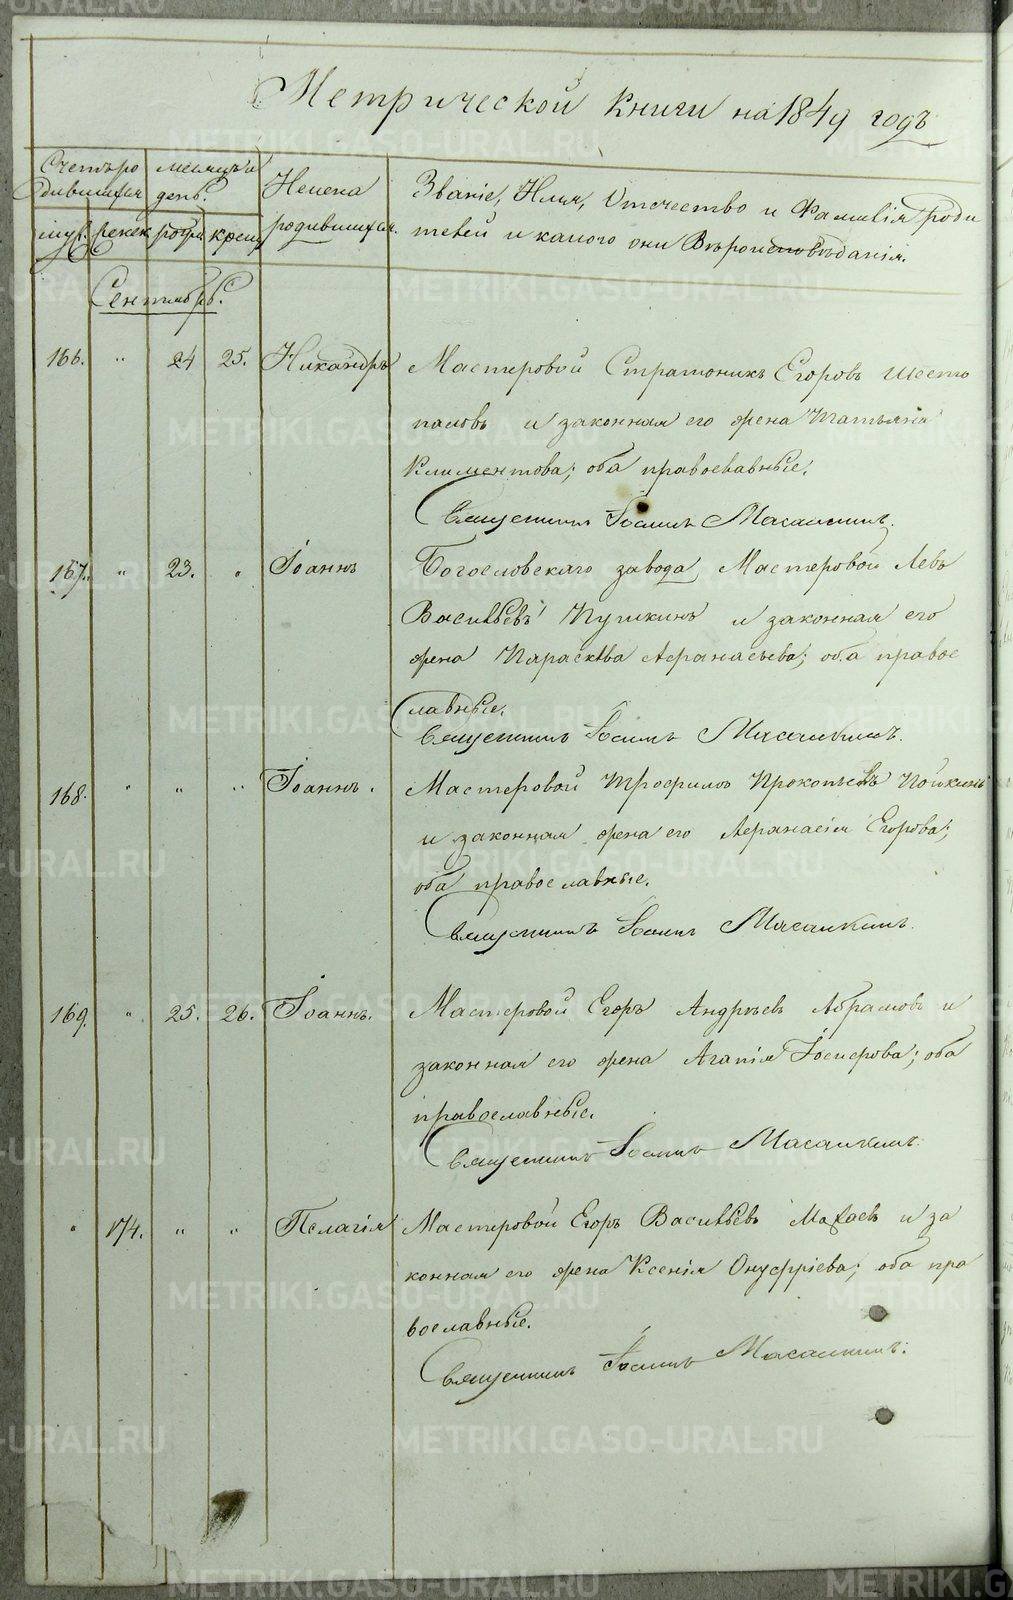 Метрической Книги на 1849 годъ
Счетъ ро
дившихся
месяцъ и
день.
Имена
родившихся.
Званіе, Имя, Отчество и Фамилія роди
телей и какого они Вѣроисповѣданія.
муж. женск. рожд. крещ.
Сентябрь.
166. " 24 25. Никандръ Мастеровой Стратоникъ Егоровъ Шесто
паловъ и законная его жена Татьяна
Климентова; оба православные.
Священникъ Іоаннъ
167. " 23. " Іоаннъ Богословскаго завода Мастеровой Левъ
Васильевъ Пушкинъ и законная его
жена Параскѣва Афанасьева; оба право
славные.
Священникъ Іоаннъ
168. " " " Іоаннъ. Мастеровой Трофимъ Прокопьевъ
и законная жена его Афанасія Егорова;
оба православные.
Священникъ Іоаннъ
169. " 25. 26. Іоаннъ. Мастеровой Егоръ Андреевъ Абрамовъ и
законная его жена Агапія Іосифова; оба
православные.
Священникъ Іоаннъ
" 174. " " Пелагія Мастеровой Егоръ Васильевъ и за
конная его жена Ксенія Онуфріева; оба пра
вославные.
Священникъ Іоаннъ
METRIKI.GASO-URAL.RU